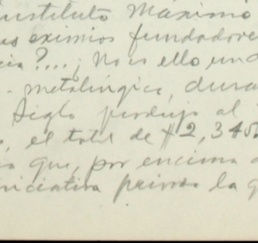 instituto Máximo
us eximios fundadore
cia?...; No es ello und
- metalúrgica, dura
Siglo produjo al
, el total de $2,345
es que, por encima d
niciativa privada la g